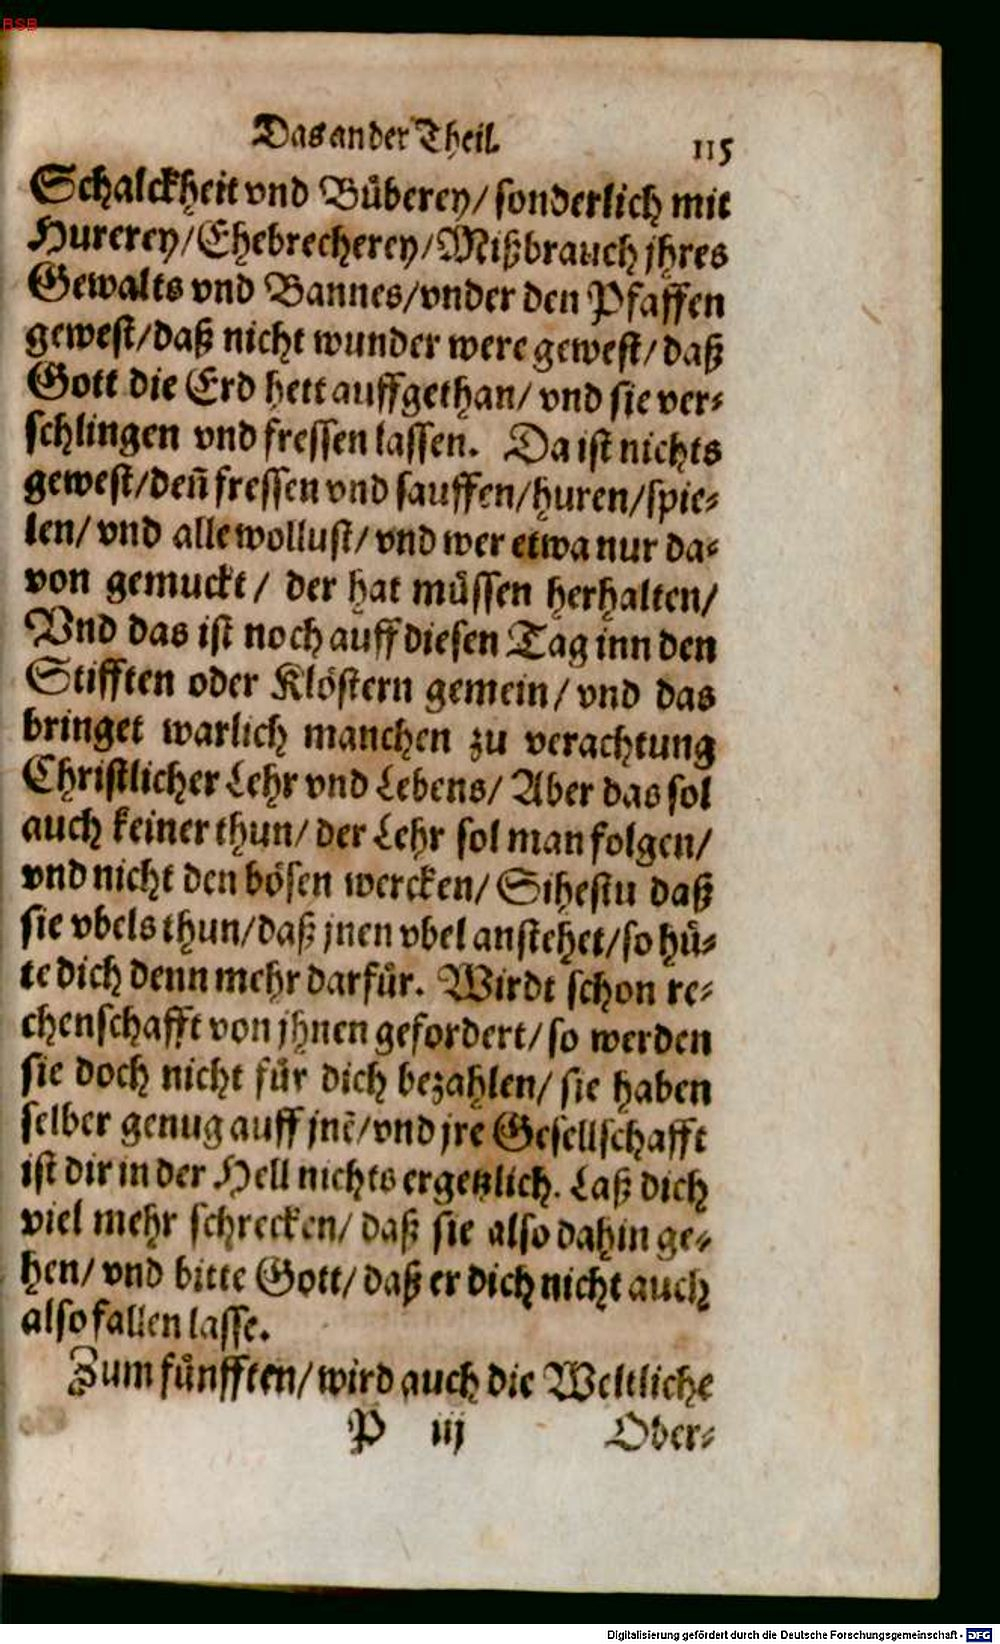 BSB
Das ander Theil. 115
Schalckheit vnd Büberey/ sonderlich mit
Hurerey/Ehebrecherey/Mißbrauch jhres
Gewalts vnd Bannes/vnder den Pfaffen
gewest/daß nicht wunder were gewest/ daß
Gott die Erd hett auffgethan/ vnd sie ver-
schlingen vnd fressen lassen. Da ist nichts
gewest/deñ fressen vnd sauffen/huren/spie-
len/ vnd alle wollust/ vnd wer etwa nur da-
von gemuckt/ der hat müssen herhalten/
Vnd das ist noch auff diesen Tag inn den
Stifften oder Klöstern gemein/ vnd das
bringet warlich manchen zu verachtung
Christlicher Lehr vnd Lebens/ Aber das sol
auch keiner thun/ der Lehr sol man folgen/
vnd nicht den bösen wercken/ Sihestu daß
sie vbels thun/daß jnen vbel anstehet/so hü-
te dich denn mehr darfür. Wirdt schon re-
chenschafft von jhnen gefordert/ so werden
sie doch nicht für dich bezahlen/ sie haben
selber genug auff jnẽ/vnd jre Gesellschafft
ist dir in der Hell nichts ergetzlich. Laß dich
viel mehr schrecken/ daß sie also dahin ge-
hen/ vnd bitte Gott/ daß er dich nicht auch
also fallen lasse.
Zum fünfften/ wird auch die Weltliche
P iij Ober-
Digitalisierung gefördert durch die Deutsche Forschungsgemeinschaft - DFG